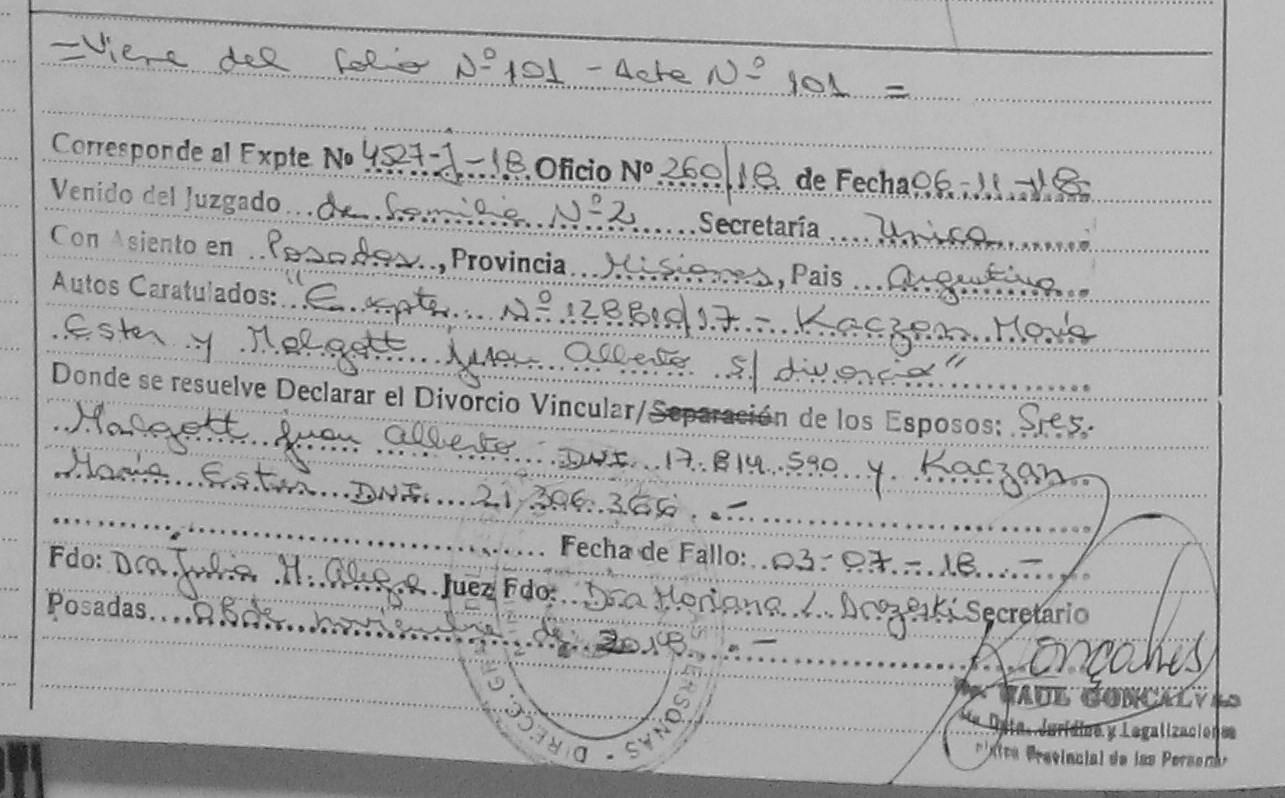 =Viene del folio Nº 101 - Acta Nº 101 =
Corresponde al Expte Nº 4527-J-18 Oficio Nº 260/18 de Fecha 06-11-18
Venido del Juzgado de Familia Nº 2 Secretaría Unica
Con Asiento en Posadas, Provincia Misiones, Pais Argentina
Autos Caratulados: "Expte Nº 128810/17 - Kaczan María
Ester y Malgott Juan Alberto s/ divorcio"
Donde se resuelve Declarar el Divorcio Vincular/Separación de los Esposos: Sres.
Malgott Juan Alberto DNI. 17.814.590 y Kaczan
María Ester DNI. 21.306.366.-
Fecha de Fallo: 03-07-18.-
Fdo: Dra Julia M. Juez Fdo: Dra Mariana Secretario
Posadas 08 de noviembre de 2018.-
Gonçalves
RAUL GONCALVES
Dpto. Jurídico y Legalizaciones
Provincial de las Personas
DIRECC. GR PERSONAS